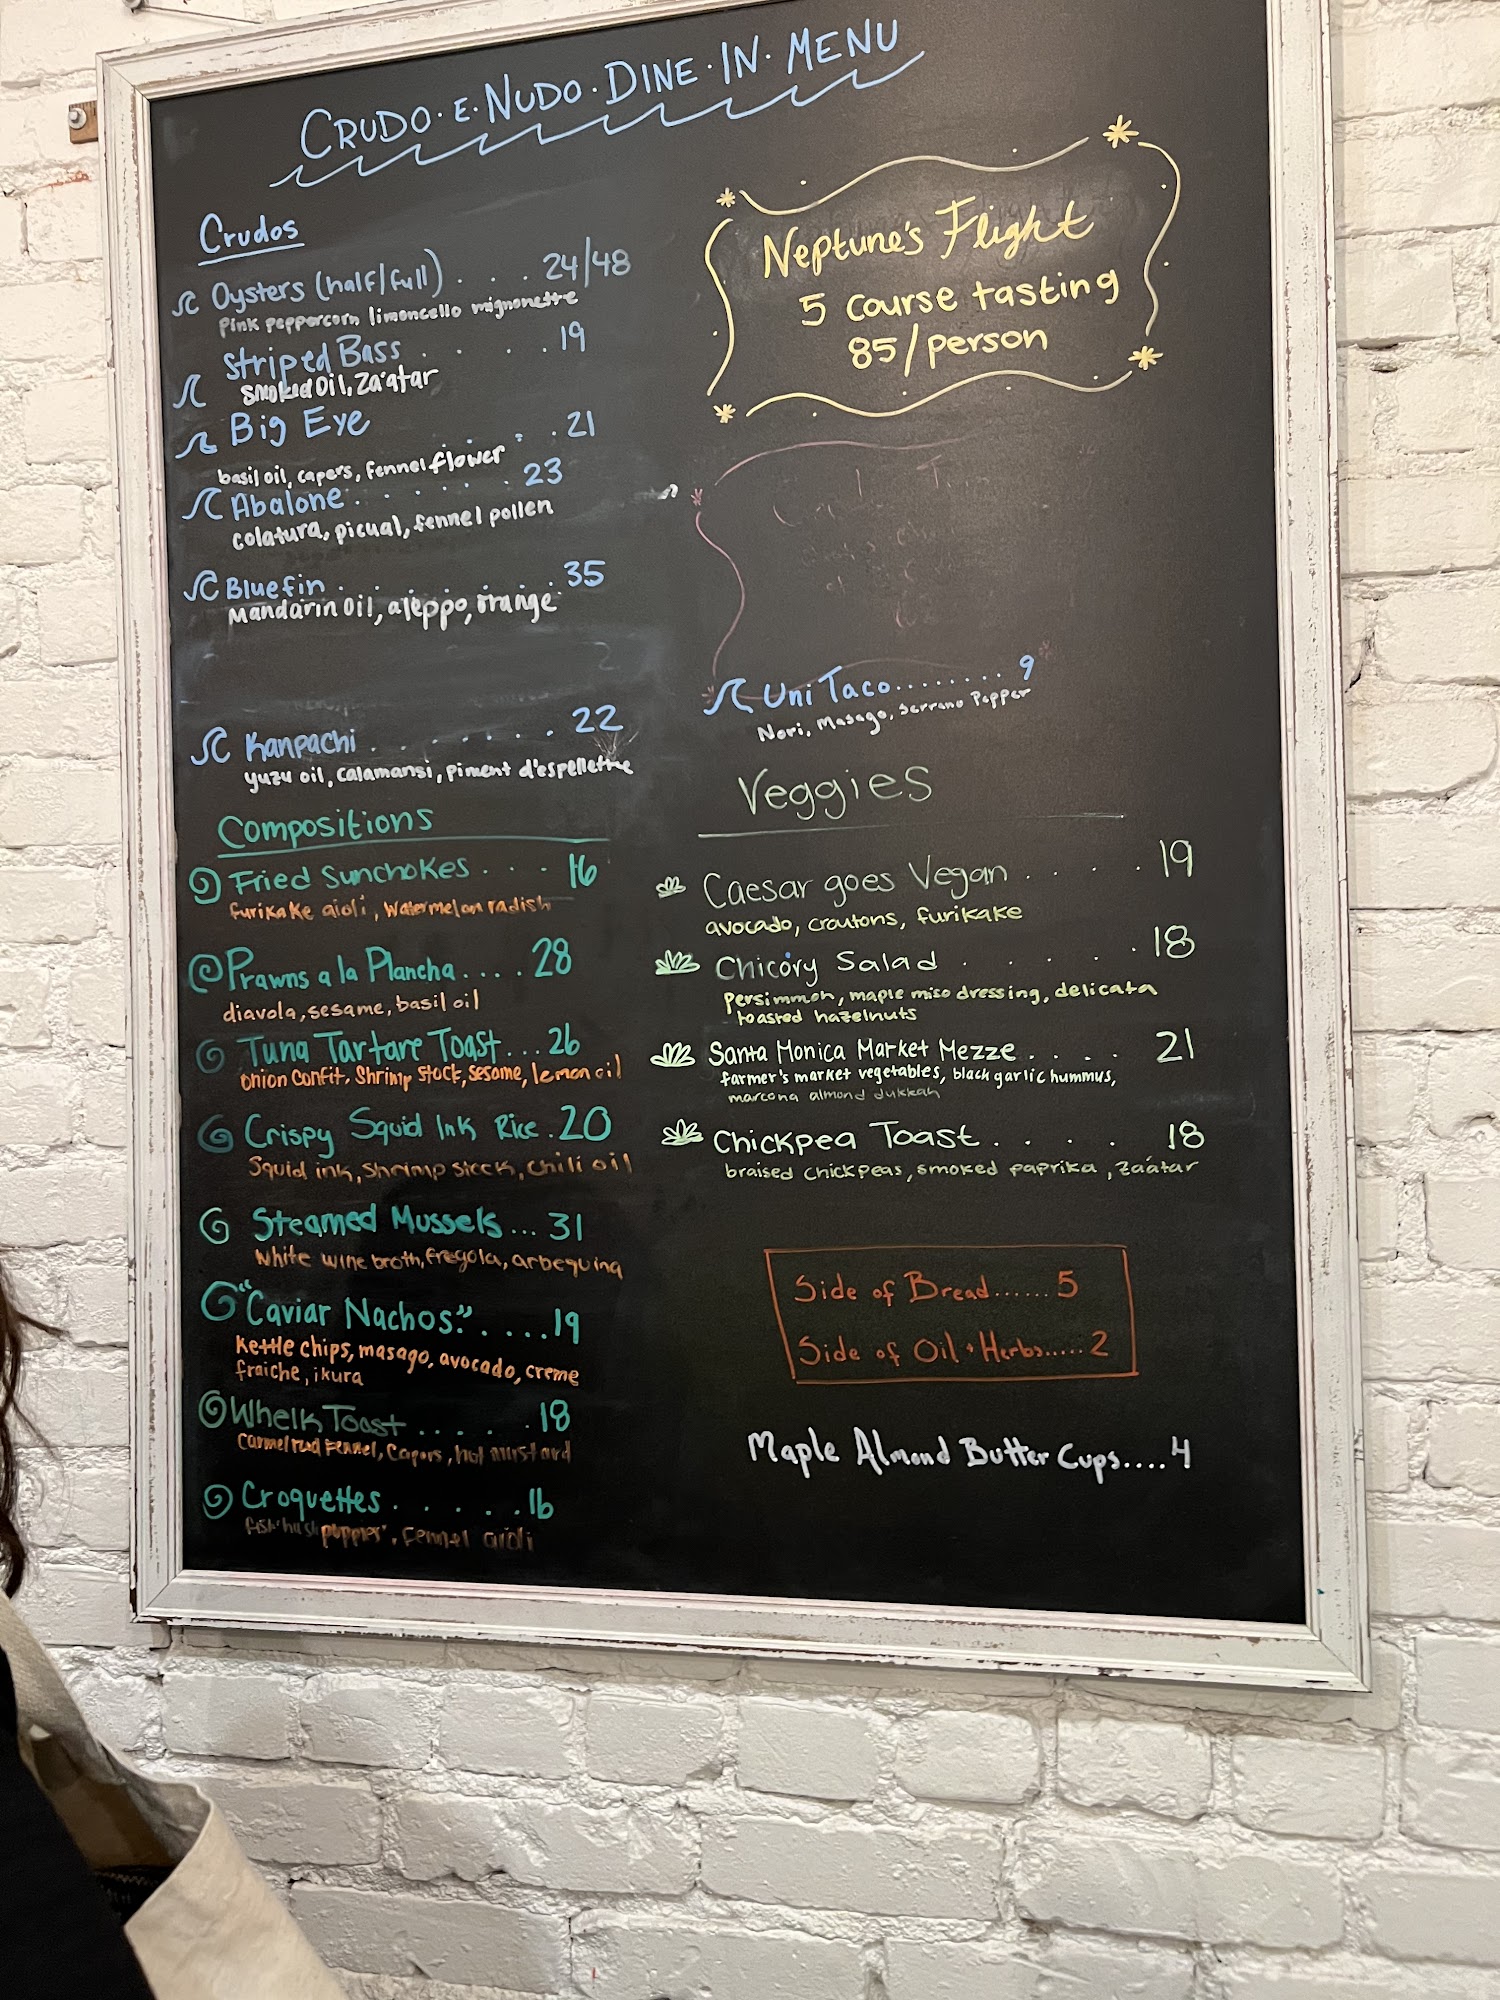 CRUDO · E · NUDO · DINE · IN · MENU
Crudos
Oysters (half/full) . . . . 24/48
Pink peppercorn limoncello mignonette
Striped Bass . . . . . 19
Smoked Oil, Za'atar
Big Eye . . 21
basil oil, capers, fennel flower
Abalone . . . . . . . 23
colatura, picual, fennel pollen
Bluefin . . . . . . . . 35
Mandarin Oil, aleppo, orange
Kanpachi . . . . . . . . 22
yuzu oil, calamansi, piment d'espellette
Compositions
Fried Sunchokes . . . 16
furikake aioli, watermelon radish
Prawns a la Plancha .... 28
diavola, sesame, basil oil
Tuna Tartare Toast... 26
onion confit, Shrimp Stock, sesame, lemon oil
Crispy Squid Ink Rice . 20
Squid ink, shrimp stock, chili oil
Steamed Mussels... 31
white wine broth, fregola, arbequina
"Caviar Nachos" . . . . . 19
kettle chips, masago, avocado, creme
fraiche, ikura
Whelk Toast . . . . . . 18
Fennel, capers, hot mustard
Croquettes . . . . . . 16
fish 'hush puppies', fennel aioli
Neptune's Flight
5 course tasting
85/person
Uni Taco......... 9
Nori, Masago, Serrano Pepper
Veggies
Caesar goes Vegan . . . . . 19
avocado, croutons, furikake
Chicory Salad . . . . . . 18
persimmon, maple miso dressing, delicata
toasted hazelnuts
Santa Monica Market Mezze . . . . 21
farmer's market vegetables, black garlic hummus,
marcona almond dukkah
Chickpea Toast . . . . 18
braised chickpeas, smoked paprika, za'atar
Side of Bread...... 5
Side of Oil + Herbs..... 2
Maple Almond Butter Cups.... 4